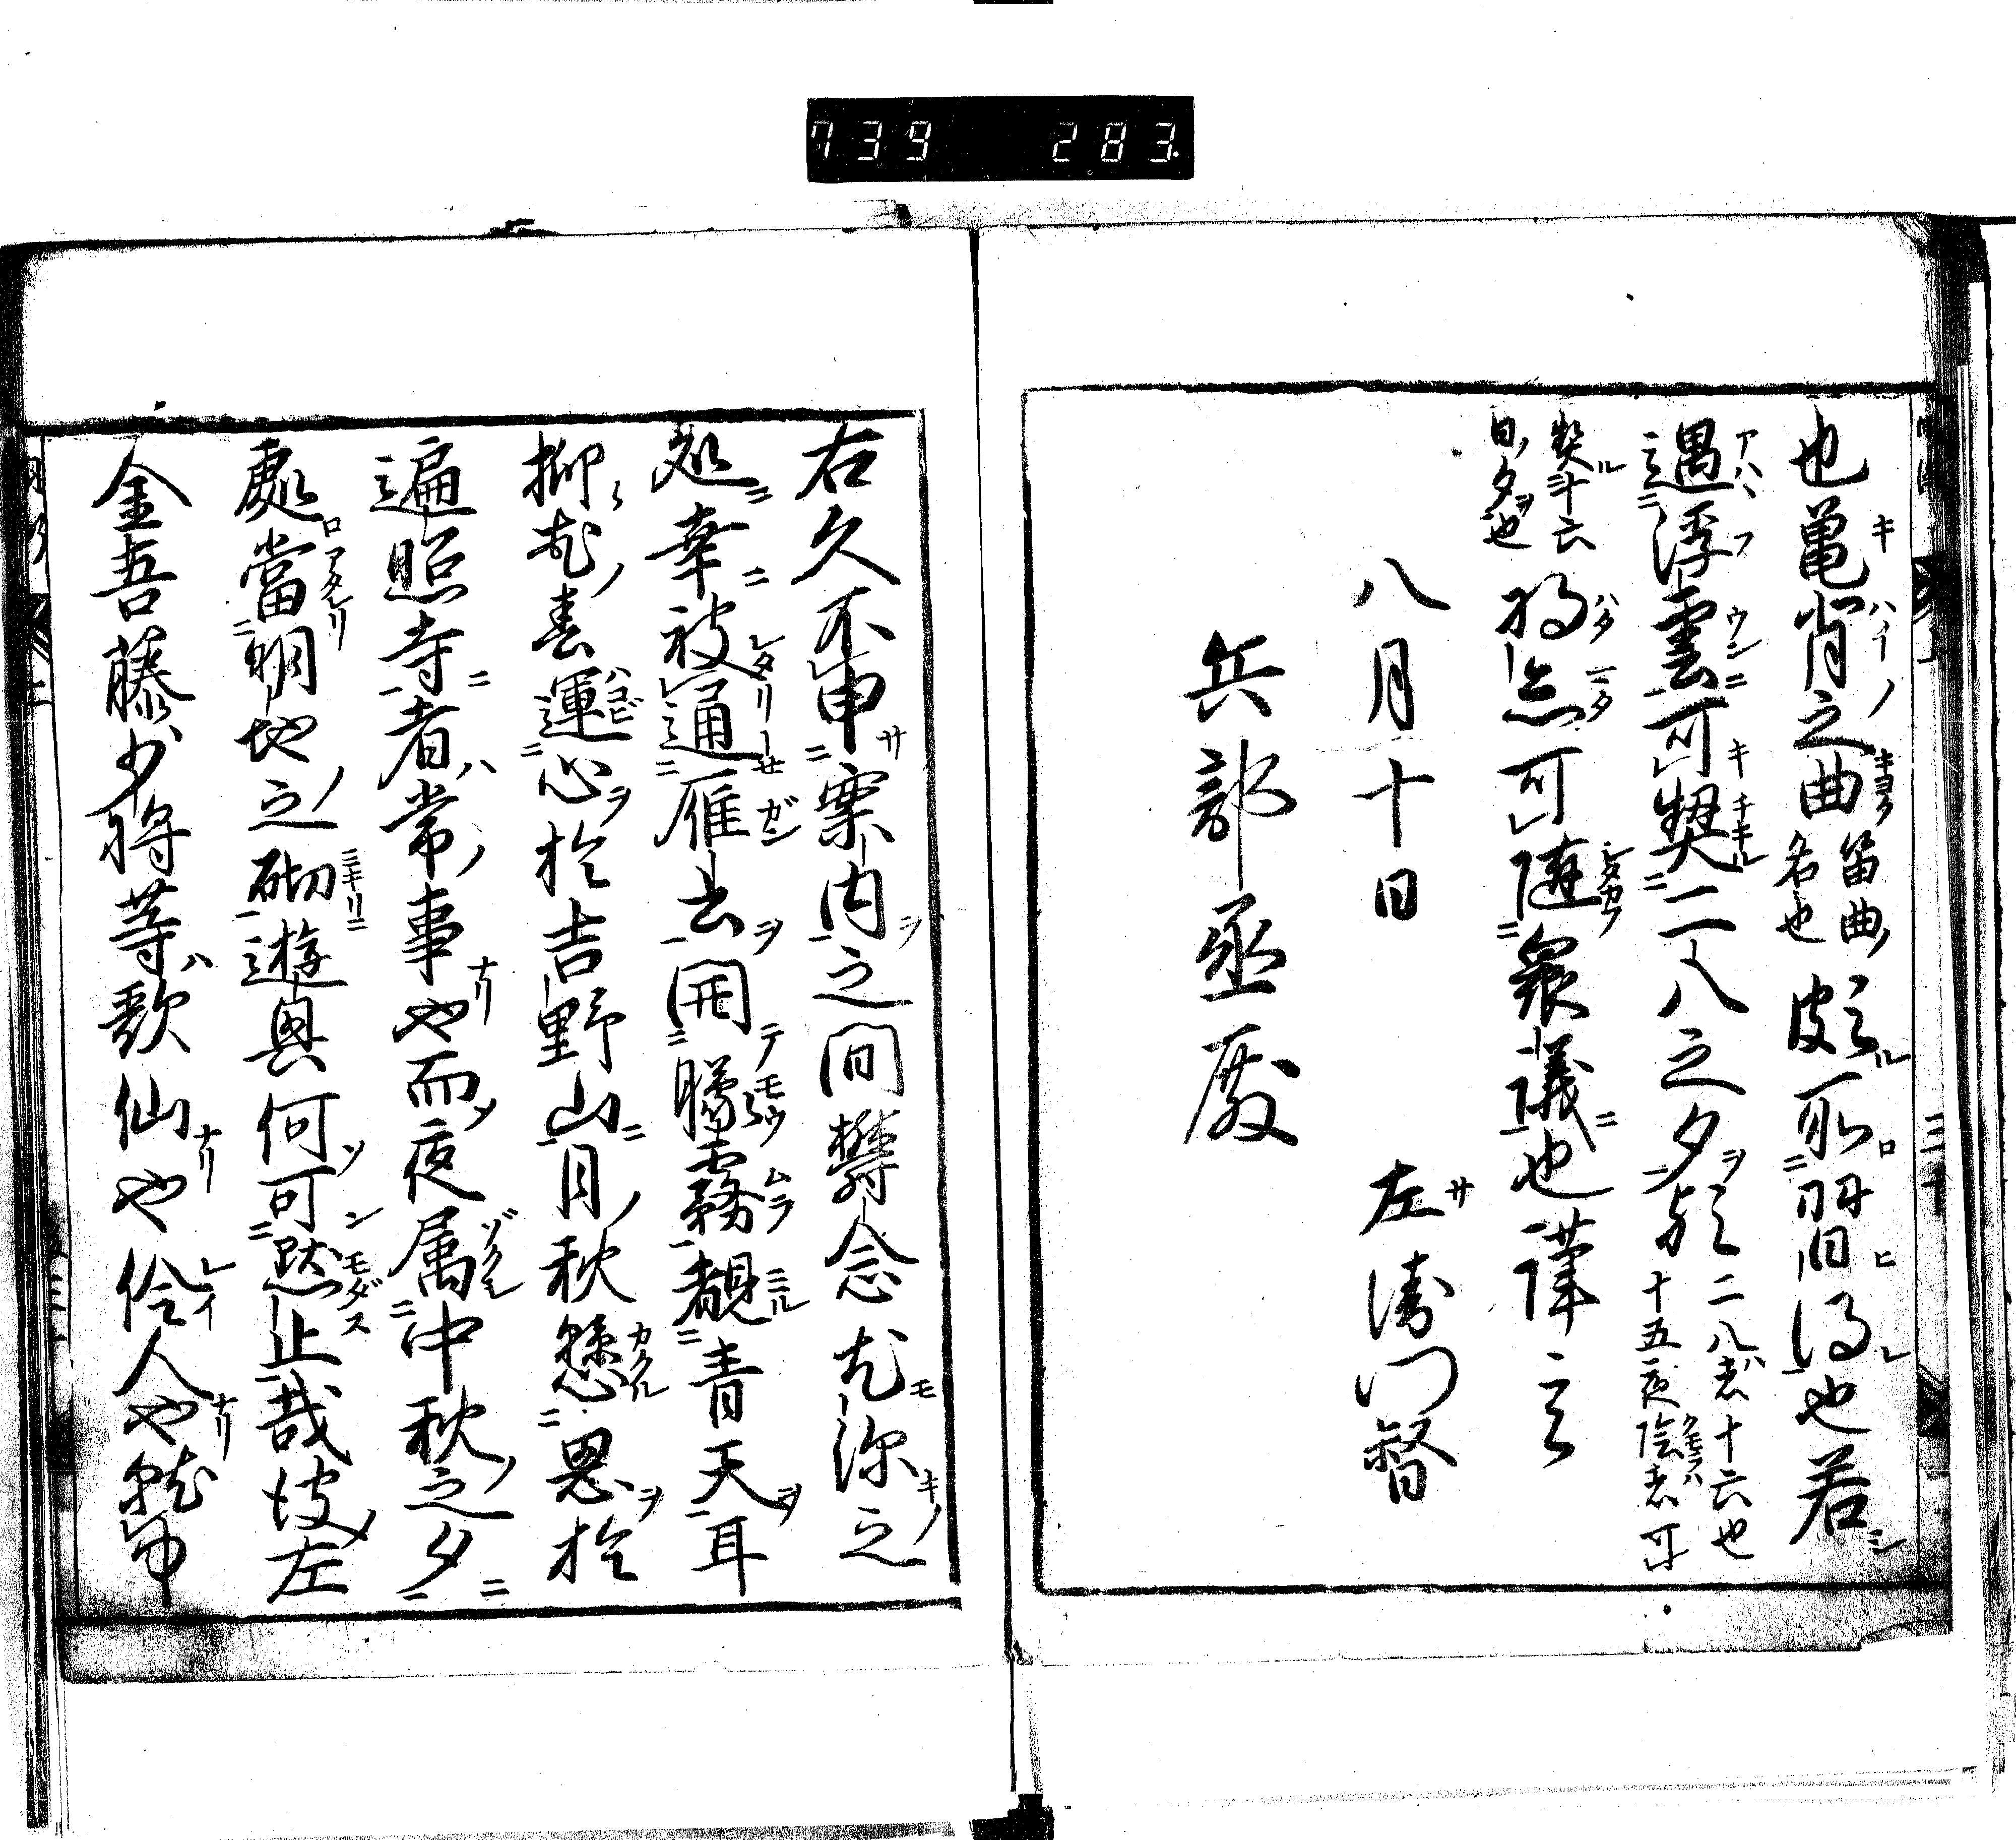 739 283
也亀背之曲笛曲名也頗所習得也若
遇浮雲可契二八之夕歟二八者十六也十五夜陰者可
契十六日夕也将亦可随衆議也謹言
八月十日 左衛門督
兵部丞殿
右久不申案内之間欝念尤深之
処幸被通雁去開朦霧覩青天耳
抑花春運心於吉野山月秋懸思於
遍照寺者常事也而夜属中秋之夕
處當明地之砌遊興何可黙止哉彼左
金吾藤少将等歌仙也伶人也就中